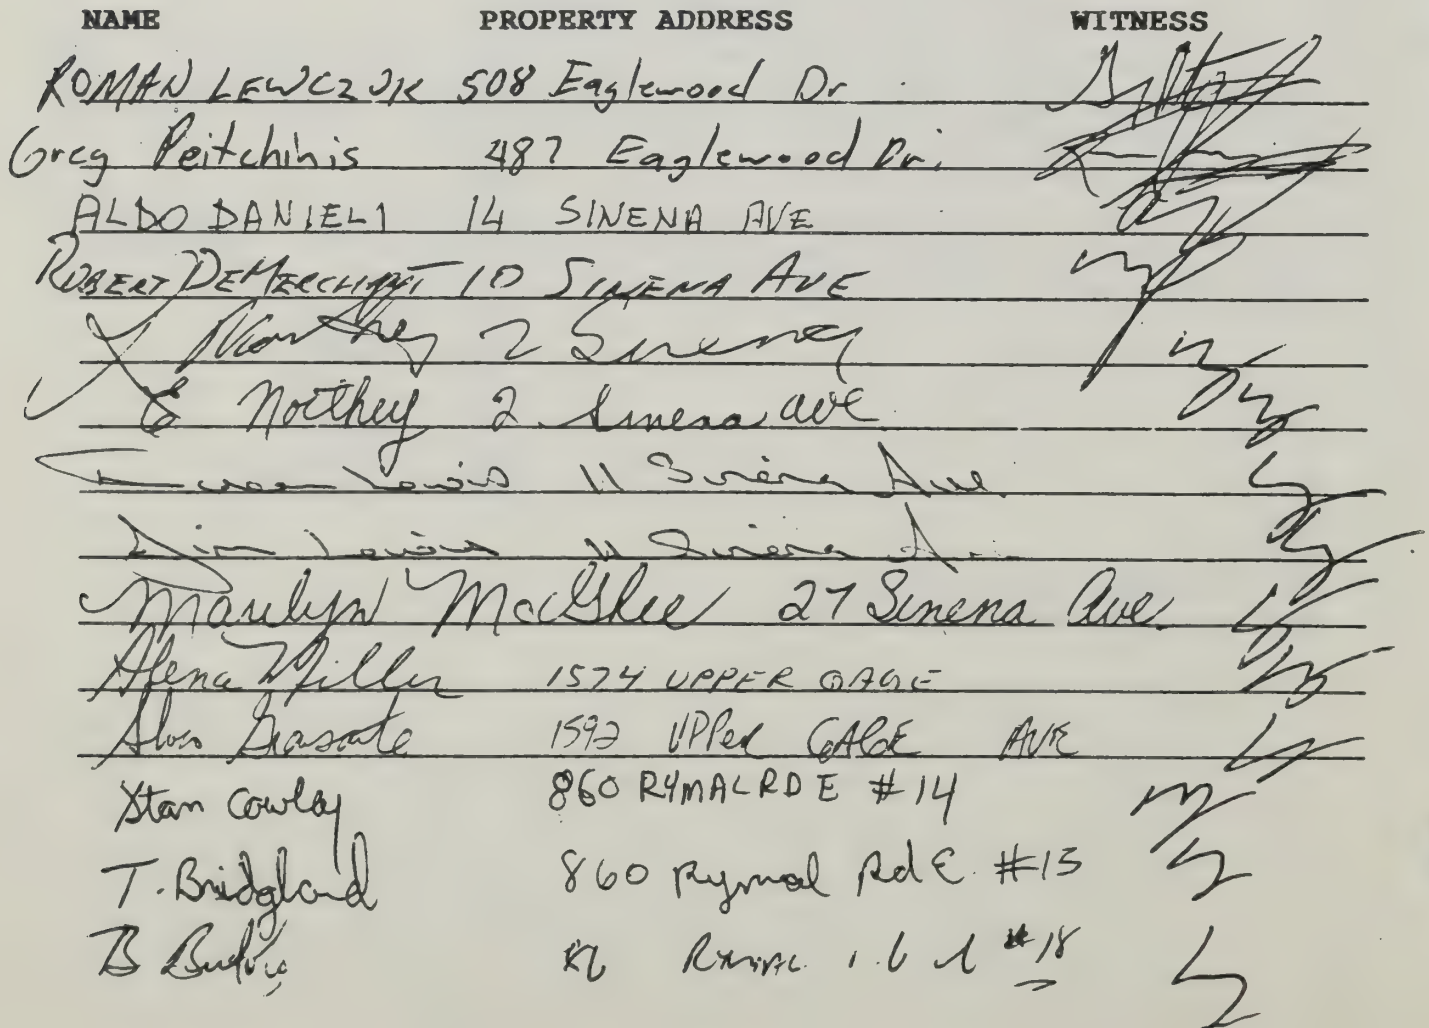 NAME PROPERTY ADDRESS WITNESS
ROMAN LEWCZUK 508 Eaglewood Dr
Greg Peitchinis 487 Eaglewood Dr.
ALDO DANIELI 14 SINENA AVE
ROBERT DEMERCHANT 10 SINENA AVE
Northey 2 Sinena
E Northey 2 Sinena ave
Lewis 11 Sinena Ave.
Jim Lewis 11 Sinena
Marilyn MacGhee 27 Sinena Ave.
Miller 1574 UPPER GAGE
1592 UPPer GAGE AVE
Stan Cowley 860 RYMAL RD E #14
T. Bridgland 860 Rymal Rd E. #15
B RYMAL #18